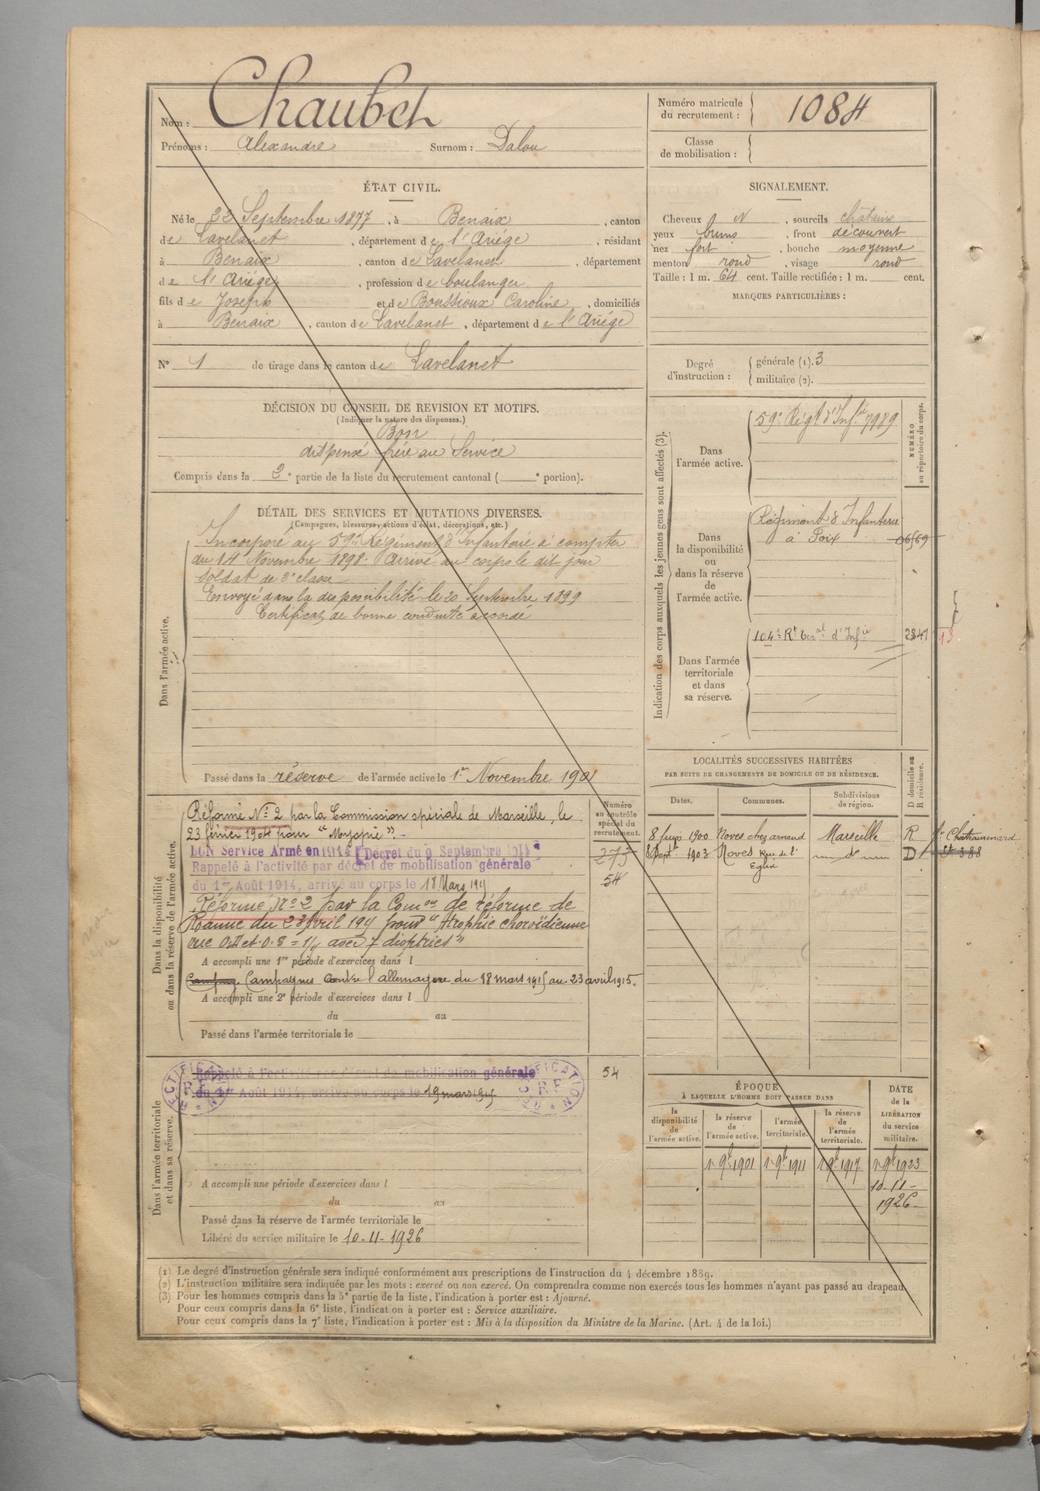 Nom : Chaubet
Prénoms : Alexandre Surnom : Dalou
Numéro matricule du recrutement : 1084
Classe de mobilisation :
ÉTAT CIVIL.
Né le 22 Septembre 1877, à Benaix, canton
de Lavelanet, département de l'Ariége, résidant
à Benaix, canton de Lavelanet, département
de l'Ariége, profession de boulanger
fils de Joseph et de Boussioux Caroline, domiciliés
à Benaix, canton de Lavelanet, département de l'Ariége
N° 1 de tirage dans le canton de Lavelanet
SIGNALEMENT.
Cheveux N, sourcils chatains
yeux bruns, front découvert
nez fort, bouche moyenne
menton rond, visage rond
Taille : 1 m. 64 cent. Taille rectifiée : 1 m. cent.
MARQUES PARTICULIÈRES :
Degré d'instruction : générale (1). 3
militaire (2).
DÉCISION DU CONSEIL DE REVISION ET MOTIFS.
(Indiquer la nature des dispenses.)
Bon
dispensé frère au Service
Compris dans la 2e partie de la liste du recrutement cantonal ( e portion).
DÉTAIL DES SERVICES ET MUTATIONS DIVERSES.
(Campagnes, blessures, actions d'éclat, décorations, etc.)
Dans l'armée active.
Incorporé au 59e Régiment d'Infanterie à compter
du 14 Novembre 1898. Arrivé au corps le dit jour
soldat de 2e classe
Envoyé dans la disponibilité le 20 Septembre 1899
Certificat de bonne conduite accordé
Passé dans la réserve de l'armée active le 1er Novembre 1901
Indication des corps auxquels les jeunes gens sont affectés (3).
NUMÉRO au répertoire du corps.
Dans l'armée active.
59e Régt d'Infie 7989
Dans la disponibilité ou dans la réserve de l'armée active.
Régiment d'Infanterie
à Foix
Dans l'armée territoriale et dans sa réserve.
104e Rt teral d'Infie 2841
13
Dans la disponibilité ou dans la réserve de l'armée active.
Numéro au contrôle spécial du recrutement.
Réformé N° 2 par la Commission spéciale de Marseille, le
23 février 1904 pour "Myopie".
BON Service Armé en 1914 [Décret du 9 Septembre 1914]
Rappelé à l'activité par décret de mobilisation générale
du 1er Août 1914, arrivé au corps le 18 Mars 191
Réformé N° 2 par la Comon de réforme de
Roanne du 23 avril 191 pour "Atrophie choroïdienne
vue O.D. et O.G = 1/4 avec 7 dioptries"
A accompli une 1re période d'exercices dans l
Campagnes Contre l'allemagne du 18 mars 1915 au 23 avril 1915.
A accompli une 2e période d'exercices dans l
du au
Passé dans l'armée territoriale le
275
54
LOCALITÉS SUCCESSIVES HABITÉES
PAR SUITE DE CHANGEMENTS DE DOMICILE OU DE RÉSIDENCE.
D domicile ou R résidence.
Dates. Communes. Subdivisions de région.
1900 Noves Marseille R Chateaurenard
1903 Noves Rue de l'Eglise D
Dans l'armée territoriale et dans sa réserve.
Rappelé à l'activité par décret de mobilisation générale
du 1er Août 1914, arrivé au corps le 19 mars 1915
RECTIFICATION R.F.
RECTIFICATION R.F.
54
A accompli une période d'exercices dans l
du au
Passé dans la réserve de l'armée territoriale le
Libéré du service militaire le 10-11-1926
ÉPOQUE
À LAQUELLE L'HOMME DOIT PASSER DANS
la disponibilité de l'armée active. la réserve de l'armée active. l'armée territoriale. la réserve de l'armée territoriale.
DATE de la LIBÉRATION du service militaire.
1 9bre 1901 1 9bre 1911 1 9bre 1917 1 9bre 1923
10-11-
1926
(1) Le degré d'instruction générale sera indiqué conformément aux prescriptions de l'instruction du 4 décembre 1889.
(2) L'instruction militaire sera indiquée par les mots : exercé ou non exercé. On comprendra comme non exercés tous les hommes n'ayant pas passé au drapeau.
(3) Pour les hommes compris dans la 5e partie de la liste, l'indication à porter est : Ajourné.
Pour ceux compris dans la 6e liste, l'indication à porter est : Service auxiliaire.
Pour ceux compris dans la 7e liste, l'indication à porter est : Mis à la disposition du Ministre de la Marine. (Art. 4 de la loi.)